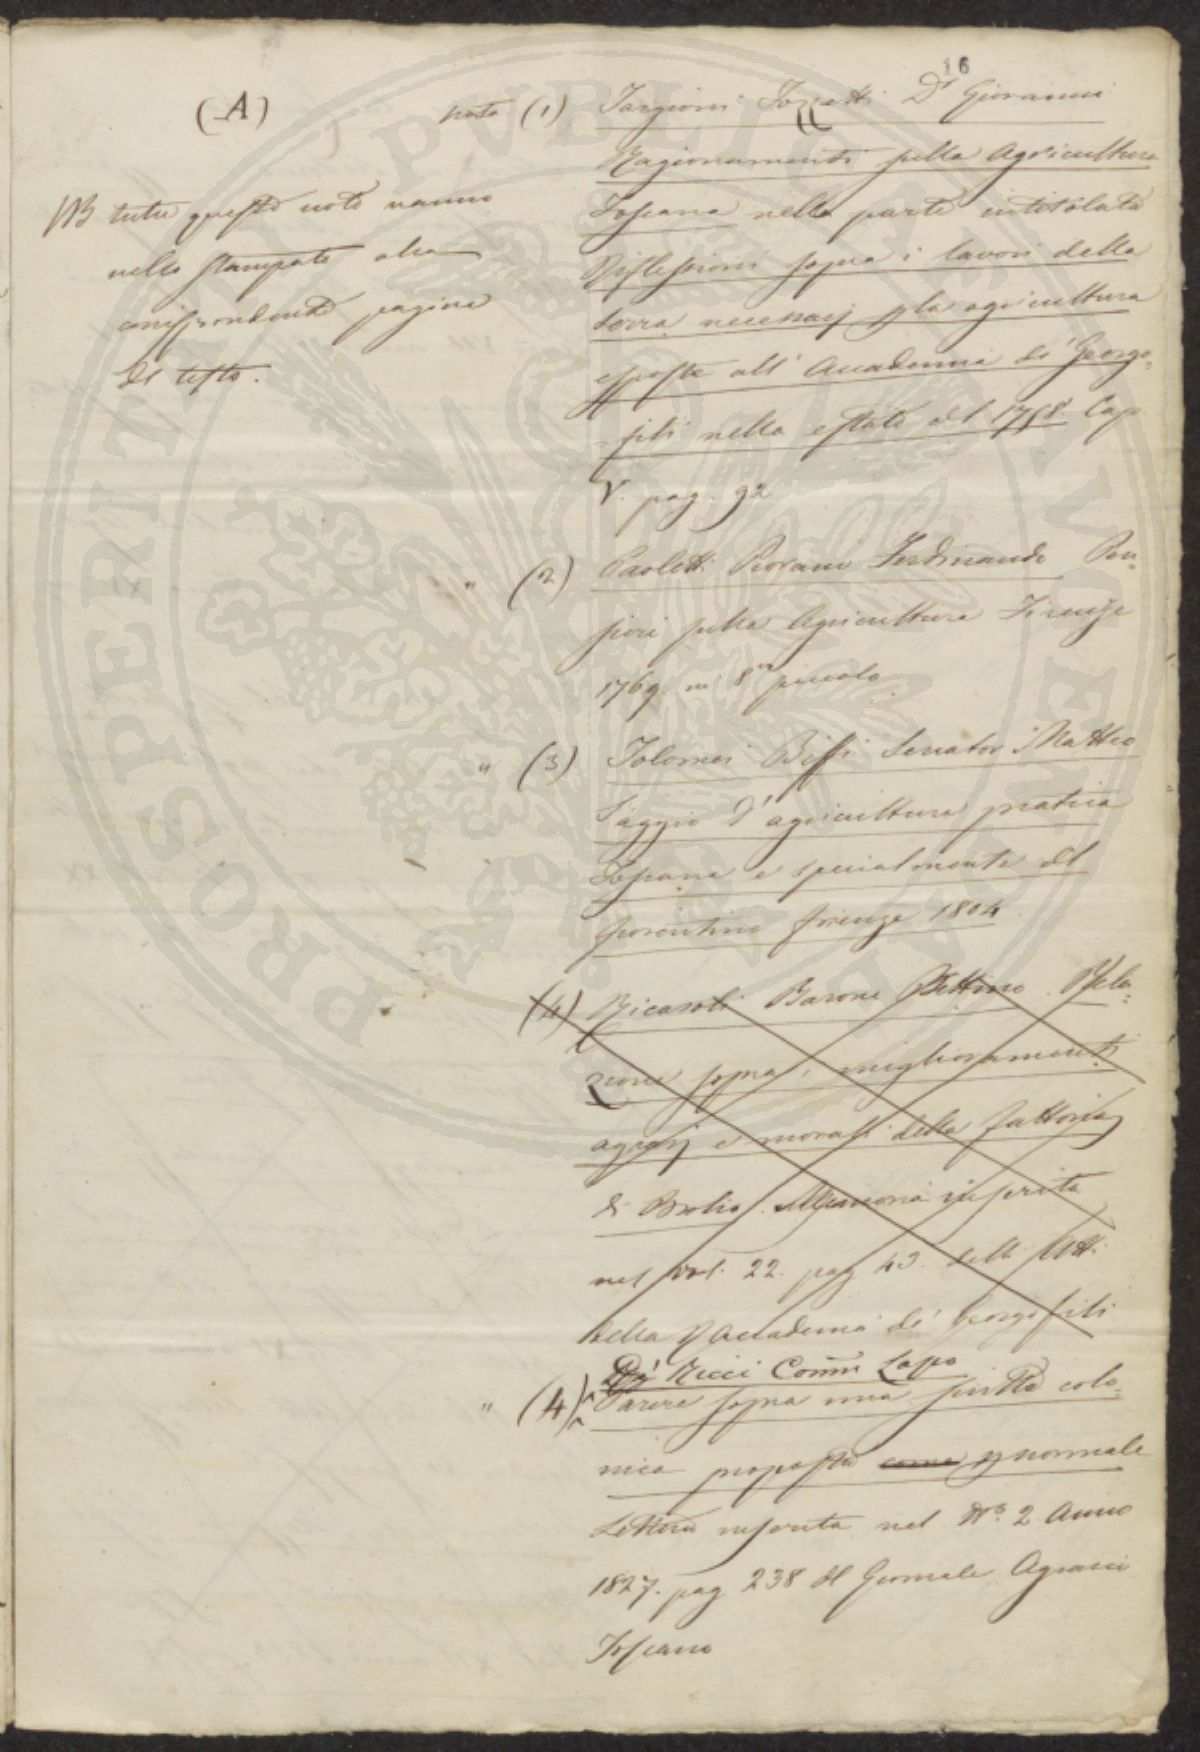 16
(A)
NB tutte queste note vanno
nello stampato alla
corrispondente pagina
del testo.
nota (1) Targioni Tozzetti Dr Giovanni
Ragionamenti sulla Agricultura
Toscana nella parte intitolata
Riflessioni sopra i lavori della
terra necessarj p la agricultura
esposte all' Accademia de' Georgo=
=fili nella estate del 1758. Cap.
V. pag. 92
" (2) Paoletti Piovano Ferdinando Pen=
sieri sulla Agricultura Firenze
1769. in 8vo piccolo
" (3) Tolomei Biffi Senator Matteo
Saggio d' agricultura pratica
Toscana e specialmente del
fiorentino firenze 1804
(4) Ricasoli Barone Bettino Rela=
zione sopra i miglioramenti
agrarj e morali della fattoria
di Brolio. Memoria inserita
nel vol. 22. pag 43. delli Atti
della Accademia de' Georgofili
De' Ricci Comm Lapo
" (4) Parere sopra una scritta colo=
nica proposta come p normale
Lettera inserita nel No. 2 Anno
1827. pag 238 del Giornale Agrario
Toscano
PROSPERITATI PVBLICAE AVGENDAE